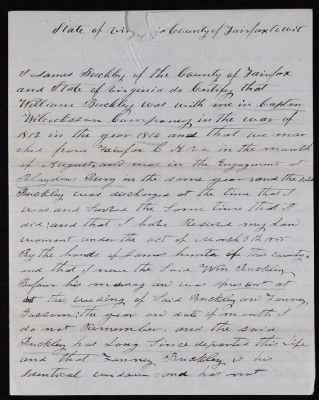 State of Virginia County of Fairfax to wit
I James Buckley of the County of Fairfax
and State of Virginia do Certify that
William Buckley was with me in Captin
Wilcickssan Campaney in the war of
1812 in the year 1814 and that we mar
ched from Fairfax C H Va in the month
of August and was in the Engagement at
Bladens Burg in the same year and the said
Buckley was discharged at the time that I
was and Served the Same time that I
did and that I have Resived my Lan
warrant under the act of March 3th 1855
By the hands of James hunter of this County
and that I new the Said Wm Buckley
Before his marrag an was present at
the weding of Said Buckley an Fanney
Gassom the year an date of month I
do not Remember, and the said
Buckley has Long Since departed this Life
and that Fanney Buckley is his
Identical widow and has not